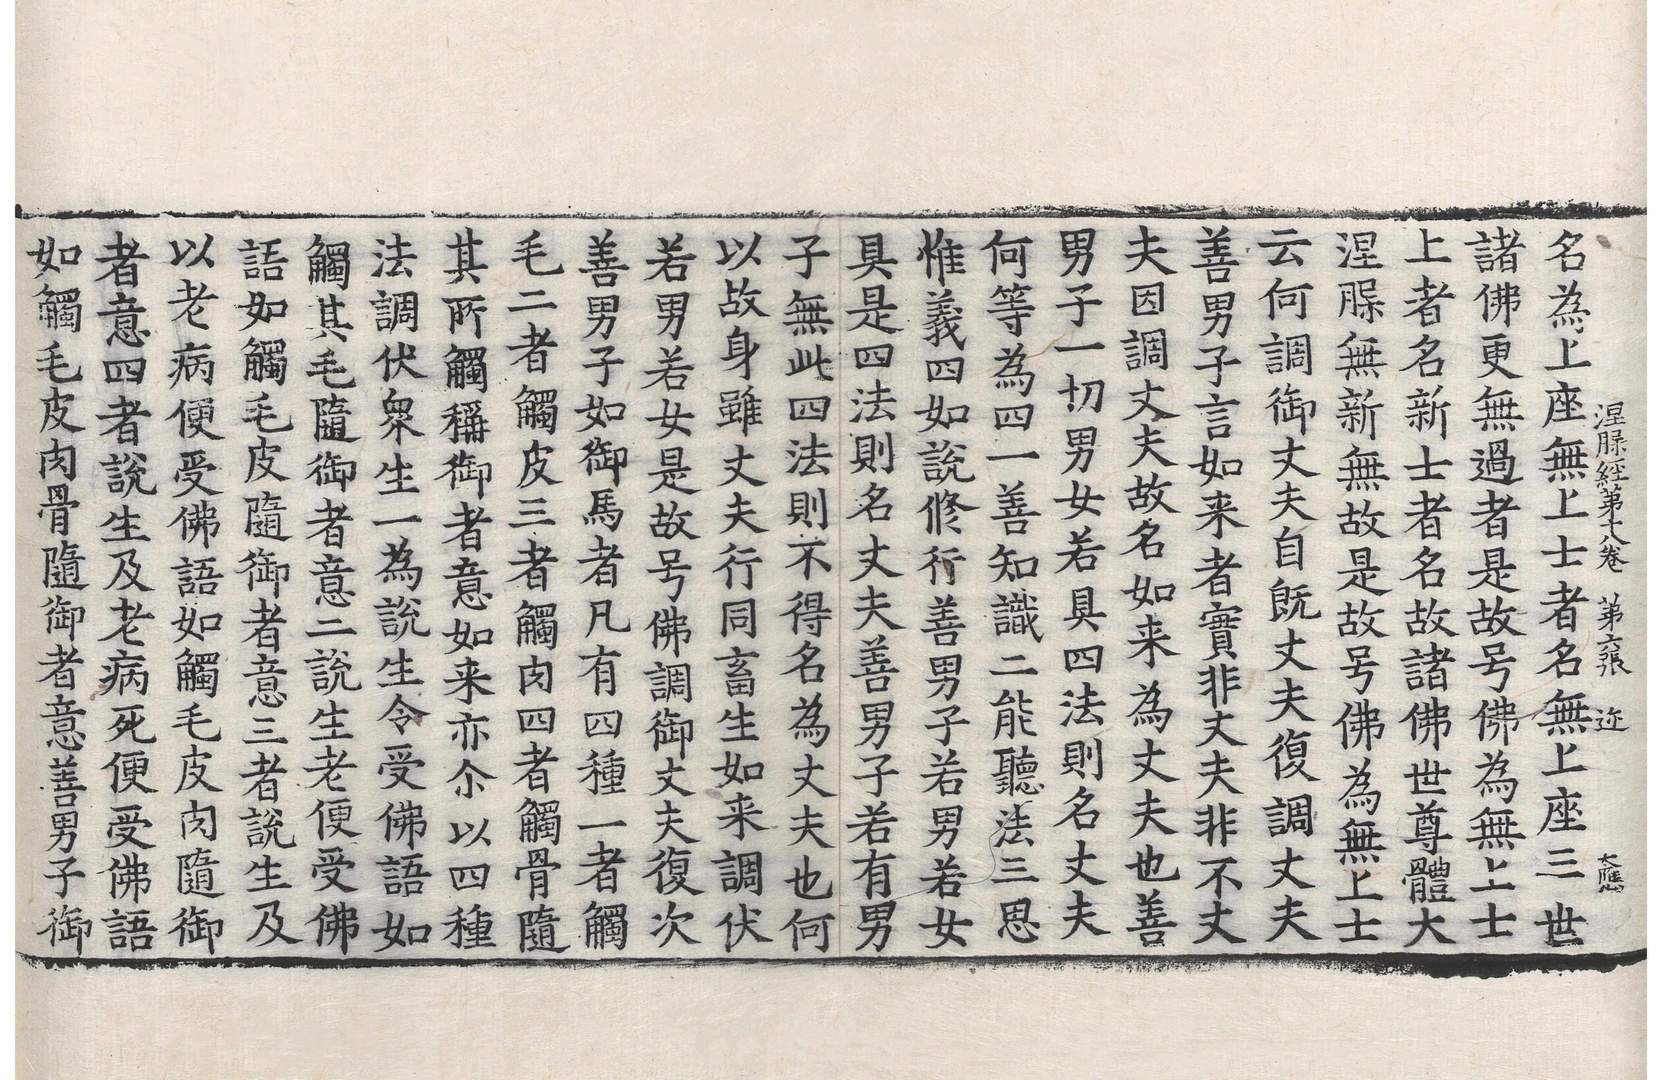 涅槃經第十八卷 第六張 迩
名為上座無上士者名無上座三世
諸佛更無過者是故号佛為無上士
上者名新士者名故諸佛世尊體大
涅槃無新無故是故号佛為無上士
云何調御丈夫自既丈夫復調丈夫
善男子言如来者實非丈夫非不丈
夫因調丈夫故名如来為丈夫也善
男子一切男女若具四法則名丈夫
何等為四一善知識二能聽法三思
惟義四如說修行善男子若男若女
具是四法則名丈夫善男子若有男
子無此四法則不得名為丈夫也何
以故身雖丈夫行同畜生如来調伏
若男若女是故号佛調御丈夫復次
善男子如御馬者凡有四種一者觸
毛二者觸皮三者觸肉四者觸骨隨
其所觸稱御者意如来亦尒以四種
法調伏衆生一為說生令受佛語如
觸其毛隨御者意二說生老便受佛
語如觸毛皮隨御者意三者說生及
以老病便受佛語如觸毛皮肉隨御
者意四者說生及老病死便受佛語
如觸毛皮肉骨隨御者意善男子御